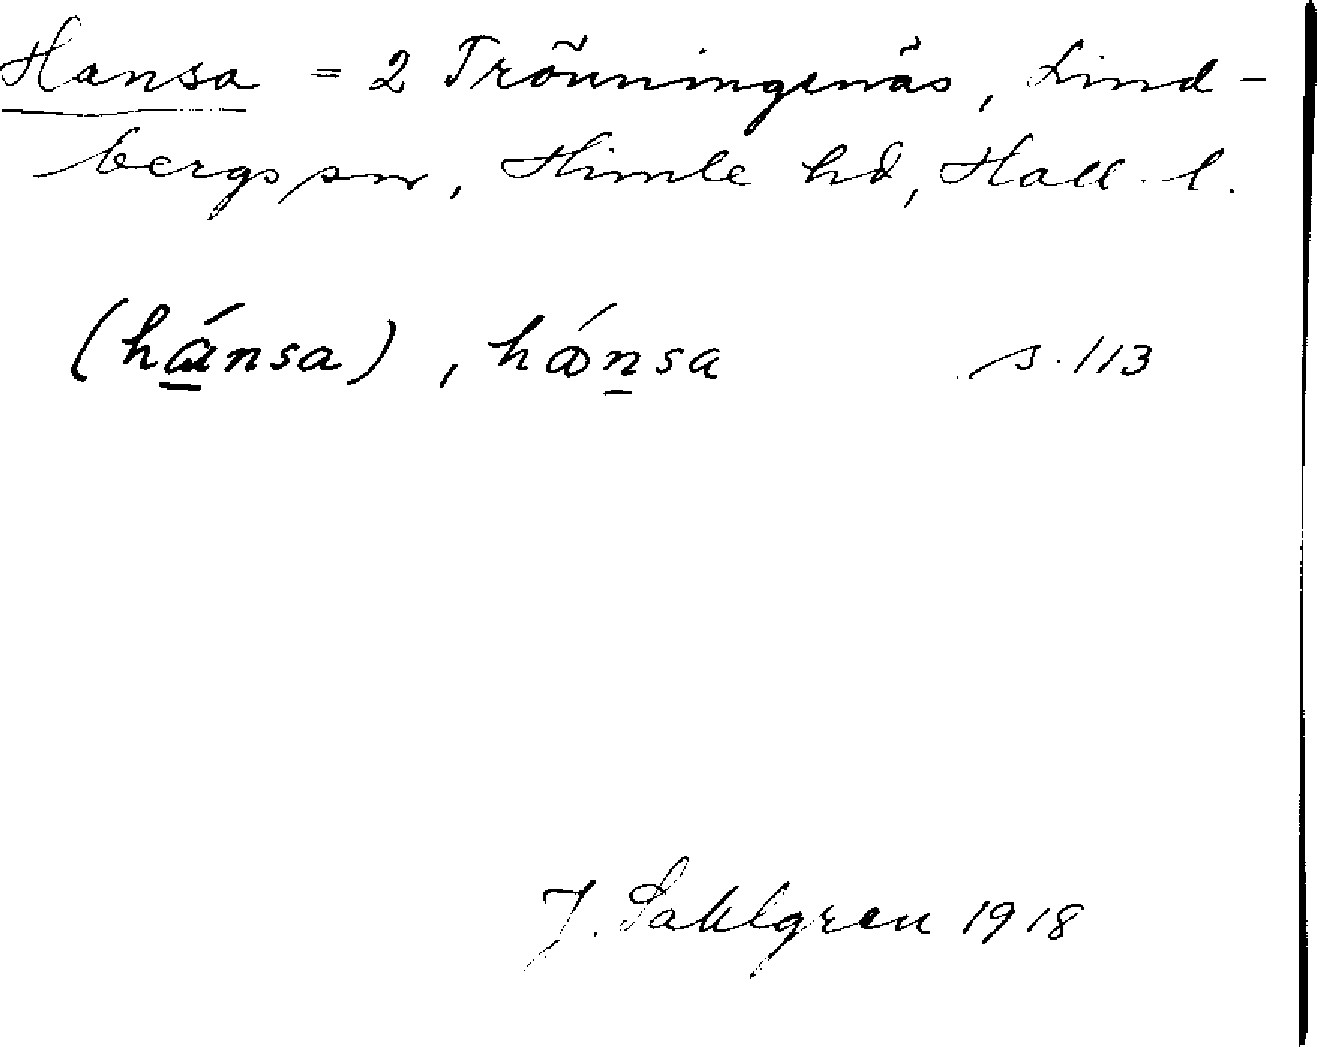 Hansa = 2 Trönningenäs, Lind-
bergs sn, Himle hd, Hall. l.
(hánsa), hánsa s. 113
J. Sahlgren 1918